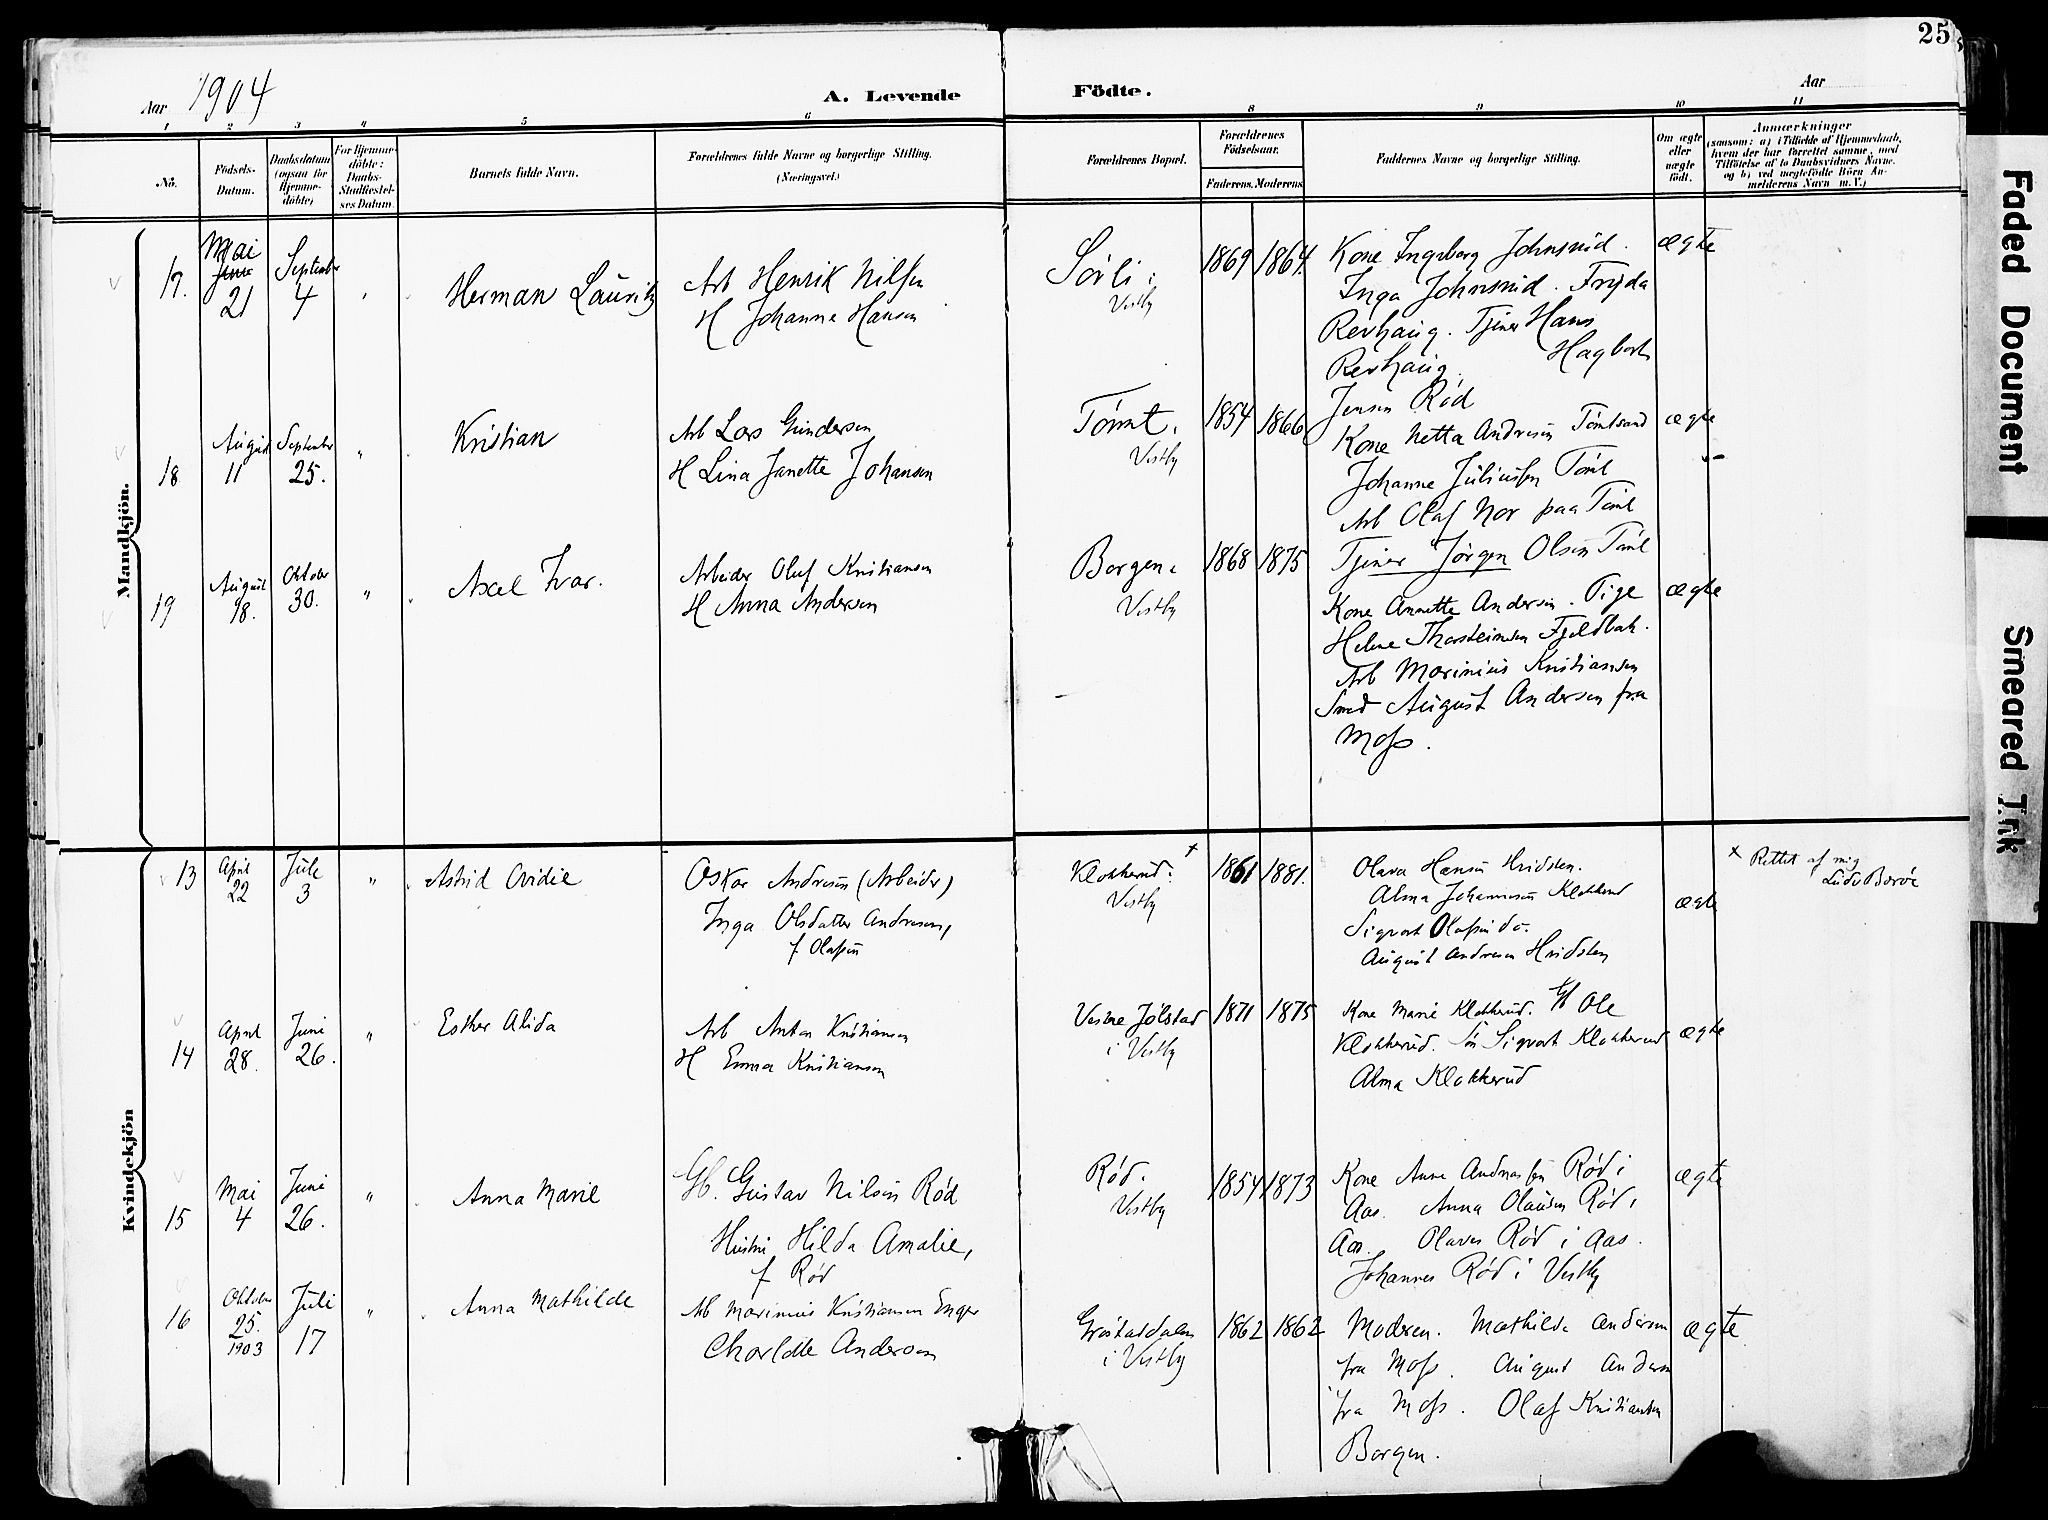 25
Aar 1904
A. Levende Födte.
Aar
1 2 3 4 5 6 8 9 10 11
No.
Födsels-
Datum.
Daabsdatum
(ogsaa for
Hjemme-
döbte)
For Hjemme-
döbte:
Daabs-
Stadfæstel-
ses Datum.
Barnets fulde Navn.
Forældrenes fulde Navne og borgerlige Stilling.
(Næringsvei.)
Forældrenes Bopæl.
Forældrenes
Födselsaar.
Faderens. Moderens.
Faddernes Navne og borgerlige Stilling.
Om ægte
eller
uægte
födt.
Anmærkninger
(saasom: a) i Tilfælde af Hjemmedaab,
hvem der har forrettet samme, med
Tilföielse af to Daabsvidners Navne.
og b) ved uægtefödte Börn An-
melderens Navn m. V.)
Mandkjön.
17. Mai
Juni
21
September
4
"
Herman Lauritz
Arb Henrik Nilsen
H Johanne Hansen
Sørli i
Vestby
1869 1864
Kone Ingeborg Johnsrud.
Inga Johnsrud. Frida
Revhaug. Tjener Hans
Hagbart
Revhaug.
ægte
18
August
11
September
25.
"
Kristian
Arb Lars Gundersen
H Lina Janette Johansen
Tømt.
Vestby
1854 1866
Jensen Rød
Kone Netta Andresen Tømtsand
Johanne Juliussen Tømt
Arb Olaf Nor paa Tømt
Tjener Jørgen Olsen Tømt
ægte
19
August
18.
Oktober
30.
"
Axel Ivar.
Arbeider Oluf Kristiansen
H Anna Andersen
Borgen i
Vestby
1868 1875
Kone Annette Andersen. Pige
Helene Thorsteinsen Fjeldbak.
Arb Marinius Kristiansen
Smed August Andersen fra
Moss.
ægte
Kvindekjön
13
April
22
Jule
3
"
Astrid Ovidie
Oskar Andresen (Arbeider)
Inga Olsdatter Andresen,
f Olafsen
Klokkerud. x
Vestby
1861 1881.
Olava Hansen Hvidsten.
Alma Johannesen Klokkerud
Sigvart Olafsen do.
August Andresen Hvidsten
ægte
x Rettet af mig
Ludv Borøe
14
April
28.
Juni
26.
"
Esther Alida
Arb Anton Kristiansen
H Emma Kristiansen
Vestre Jølstad
i Vestby
1871 1875
Kone Marie Klokkerud. Gb Ole
Klokkerud. Søn Sigvart Klokkerud
Alma Klokkerud
ægte
15
Mai
4
Juni
26.
"
Anna Marie
Gb. Gustav Nilsen Rød
Hustru Hilda Amalie,
f Rød
Rød.
Vestby
1854 1873
Kone Anne Andreassen Rød i
Aas. Anna Olausen Rød i
Aas. Olaves Rød i Aas.
Johannes Rød i Vestby
ægte
16
Oktober
25.
1903
Juli
17
"
Anna Mathilde
Arb Marinius Kristiansen Enger
Charlotte Andersen
i Vestby
1862 1862
Moderen. Mathilda Andersen
fra Moss. August Andersen
fra Moss. Olaf Kristiansen
Borgen.
ægte
Faded Document
Smeared Ink